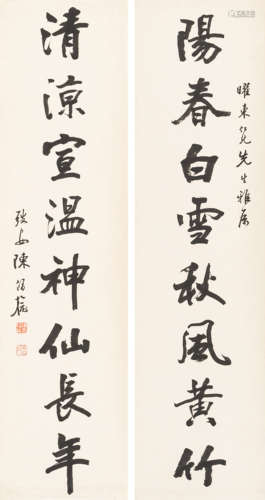 陽春白雪秋風黃竹
曜東仁兄先生雅屬
清涼宣溫神仙長年
陳